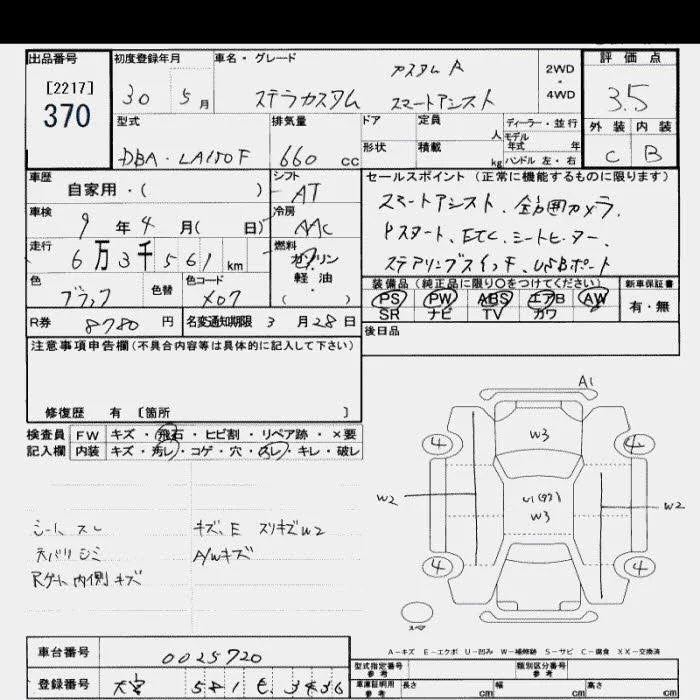 出品番号
[2217]
370
初度登録年月
30 5月
車名・グレード
カスタム R
ステラカスタム スマートアシスト
2WD
・
4WD
評価点
3.5
外装 内装
C B
型式
DBA-LA150F
排気量
660 cc
ドア
形状
定員
人
積載
kg
ディーラー・並行
モデル
年式 年
ハンドル 左・右
車歴
自家用・( )
シフト
AT
車検
9 年 4 月( 日)
冷房
AAC
走行
6万3千561 km
燃料
ガソリン
軽油
( )
色
ブラック
色替
色コード
X07
R券
8780 円
名変通知期限 3 月 28 日
セールスポイント (正常に機能するものに限ります)
スマートアシスト、全方囲カメラ、
Pスタート、ETC、シートヒーター、
ステアリングスイッチ、USBポート
装備品 (純正品に限り○をつけてください)
PS PW ABS エアB AW
SR ナビ TV カワ
新車保証書
有・無
後日品
注意事項申告欄 (不具合内容等は具体的に記入して下さい)
修復歴 有 〔箇所 〕
検査員
記入欄
FW キズ・飛石・ヒビ割・リペア跡・×要
内装 キズ・汚レ・コゲ・穴・スレ・キレ・破レ
シートスレ
天バリシミ
Rゲート内側キズ
キズ、E スリキズW2
A/Wキズ
A1
W3
4 4
W2
W3
W2
4 4
スペア
A-キズ E-エクボ U-凹み W-補修跡 S-サビ C-腐食 XX-交換済
車台番号
0025720
登録番号
大宮 581
型式指定番号
参考
類別区分番号
参考
車庫証明用
参考
長さ cm
幅 cm
高さ cm